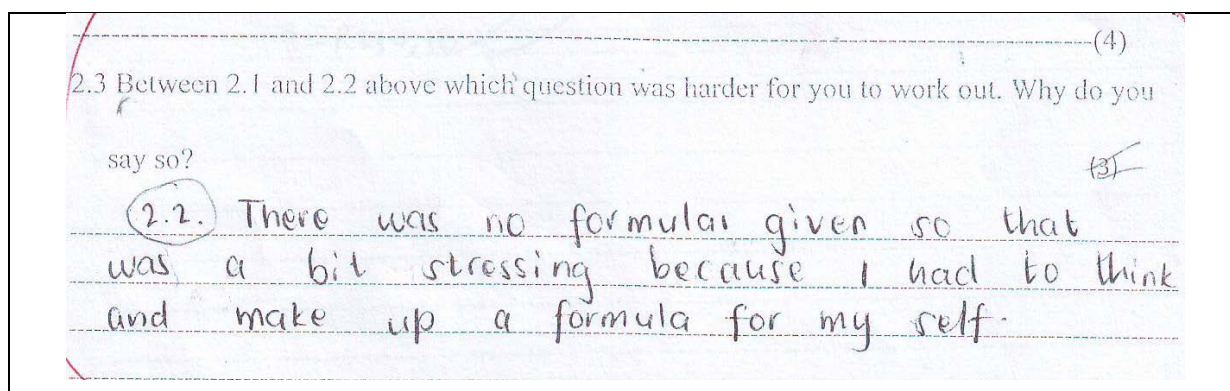 (4)
2.3 Between 2.1 and 2.2 above which question was harder for you to work out. Why do you
say so?
(3)
2.2. There was no formular given so that
was a bit stressing because I had to think
and make up a formula for my self.